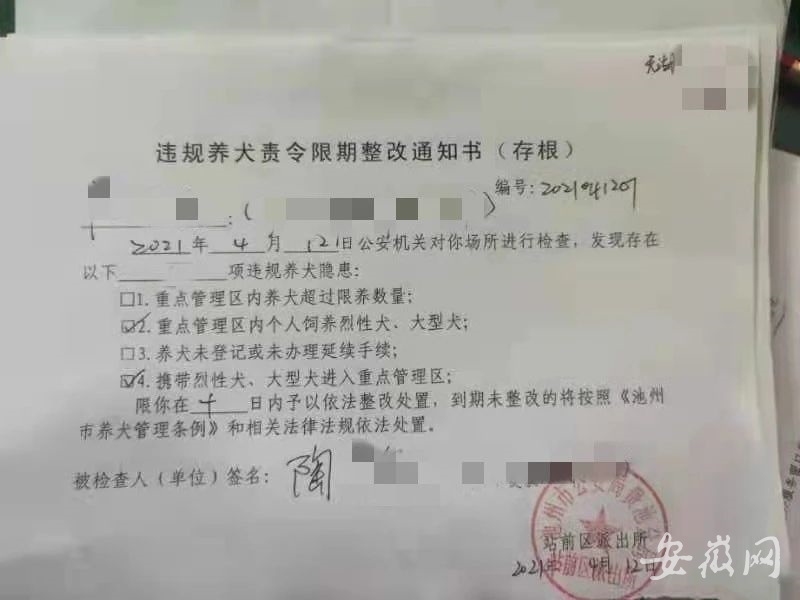 违规养犬责令限期整改通知书（存根）
编号：2021041201
：（ ）
2021年4月12日公安机关对你场所进行检查，发现存在
以下 项违规养犬隐患：
□1. 重点管理区内养犬超过限养数量；
☑2. 重点管理区内个人饲养烈性犬、大型犬；
□3. 养犬未登记或未办理延续手续；
☑4. 携带烈性犬、大型犬进入重点管理区；
限你在 日内予以依法整改处置，到期未整改的将按照《池州
市养犬管理条例》和相关法律法规依法处置。
被检查人（单位）签名：陶
池州市公安局贵池分局
站前区派出所
站前区派出所
2021年4月12日
安徽网